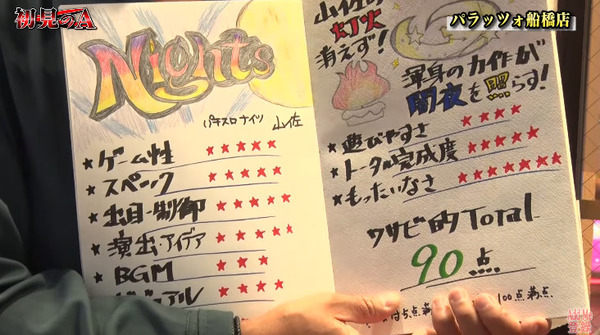 初見のA
パラッツォ船橋店
Nights
パチスロナイツ 山佐
★ゲーム性 ★★★★★
★スペック ★★★★★
★出目・制御 ★★★★★
★演出・アイデア ★★★★
★BGM ★★★
山佐の
灯火
消えず!
渾身の力作が
闇夜を照らす!
★遊びやすさ ★★★★
★トータル完成度 ★★★★★
★もったいなさ ★★★★★★★
ワサビ的Total
90点
100点満点